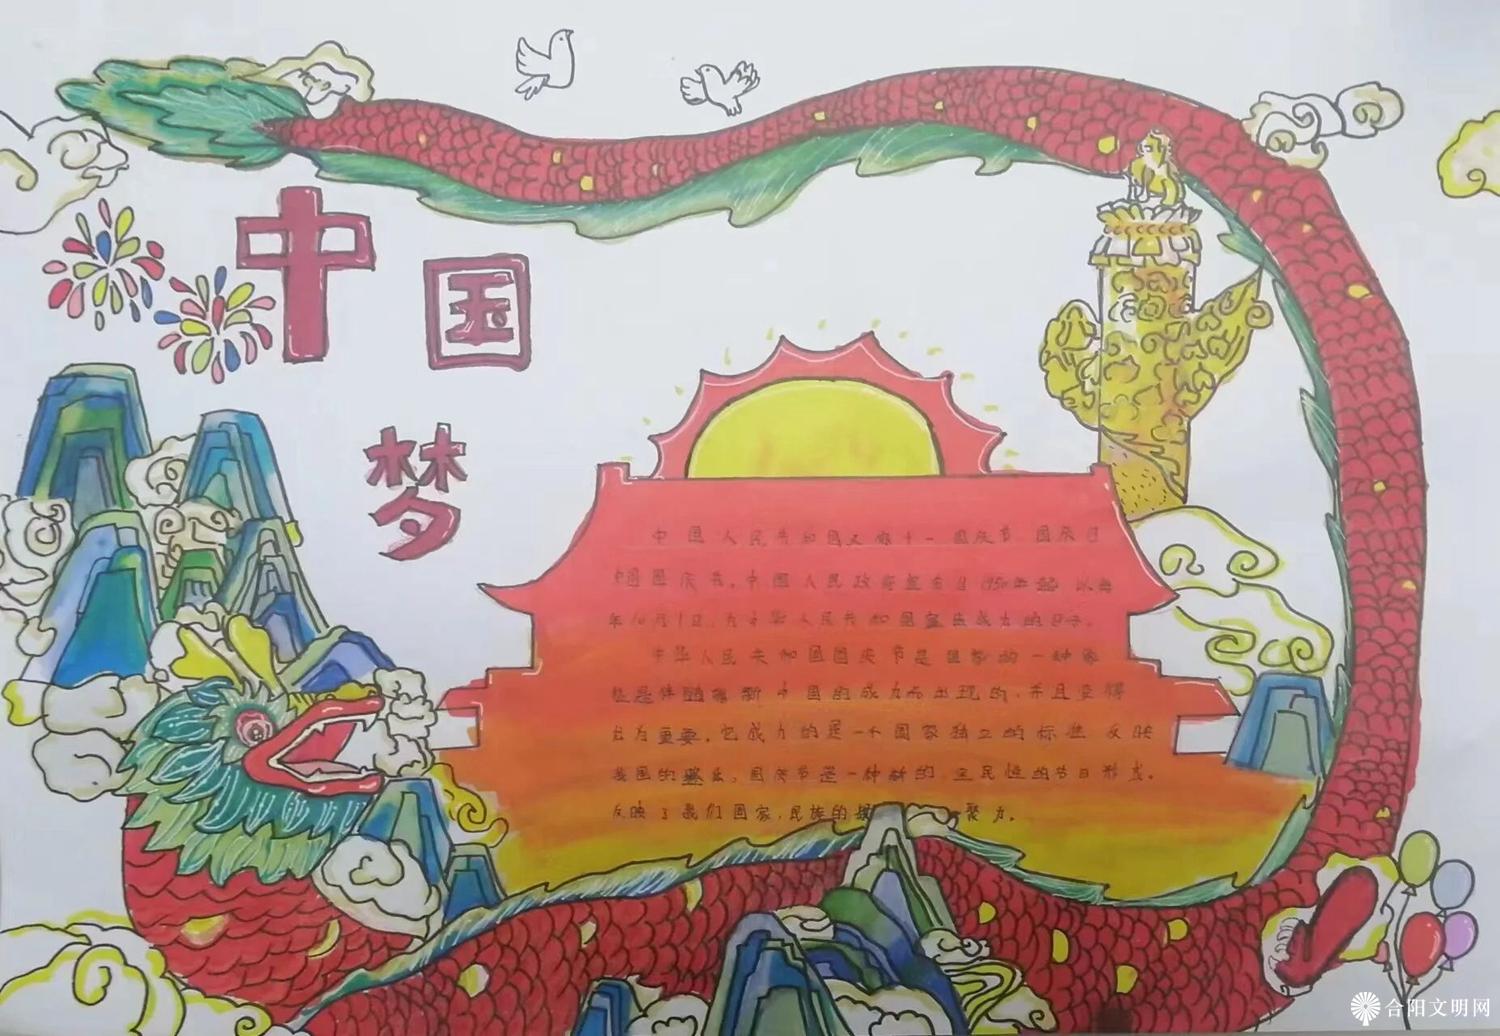 中国
梦
中国人民共和国又称十一国庆节、国庆日
中国国庆节。中国人民政府宣布自1950年起以每
年10月1日,为中华人民共和国宣告成立的日子。
中华人民共和国国庆节是国家的一种象
征是伴随着新中国的成立而出现的,并且变得
尤为重要。它成为的是一个国家独立的标准 反映
我国的国庆节是一种新的、全民性的节日形式。
反映了我们国家、民族的 聚力。
合阳文明网